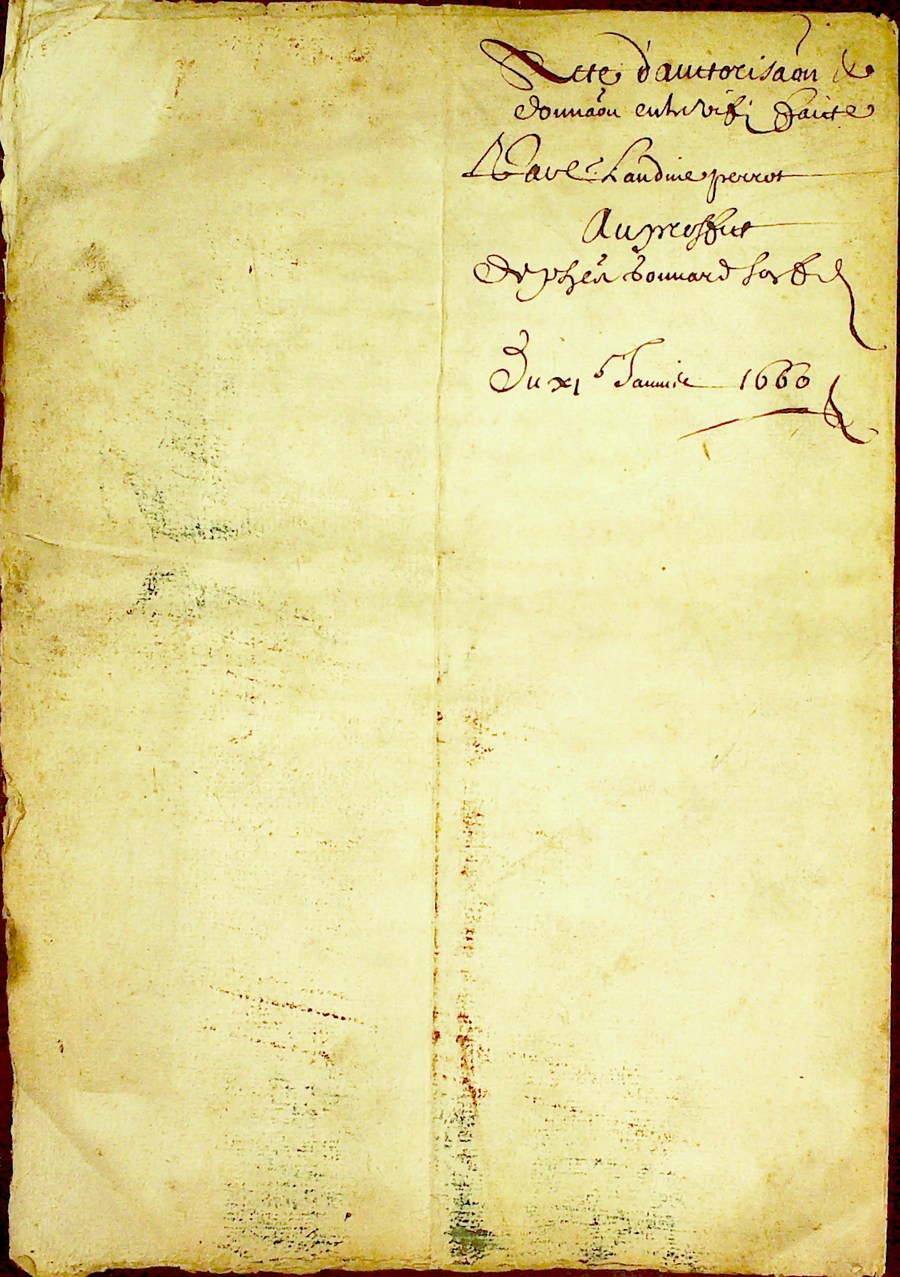 Acte d'auctorisaõn &
donnaõn entre vifz faicte
Par Landine perrot
Au proffict
de phẽs bonnard son filz
Du xi^e Janvier 1660